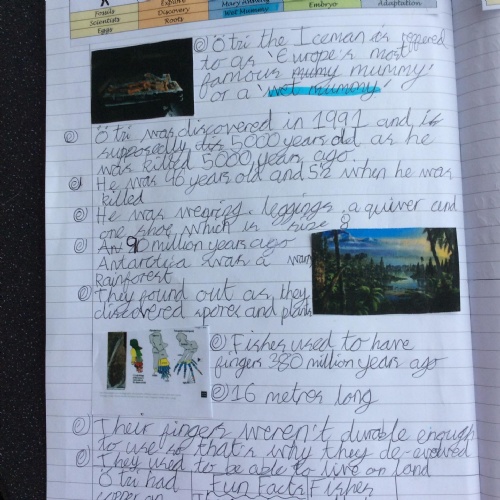 Fossils Explore Mary Anning Adaptation
Scientists Discovery Wet Mummy Embryo
Eggs Roots
Ötzi the Iceman is refered
to as 'Europe's most
famous mumy mummy'
or a 'wet mummy'
Ötzi was discovered in 1991 and is
supposally 5000 years old as he
was killed 5000 years ago.
He was 46 years old and 5'2 when he was
killed
He was wearing leggings, a quiver and
one shoe which is size 8
90 million years ago
Antarctica was a warm
Rainforest
They found out as they
discovered spores and plants
Fishes used to have
fingers 380 million years ago
16 metres long
Their fingers weren't durable enough
to use so that's why they de-evolved
They used to be able to live on land
Ötzi had Fun Facts Fishes